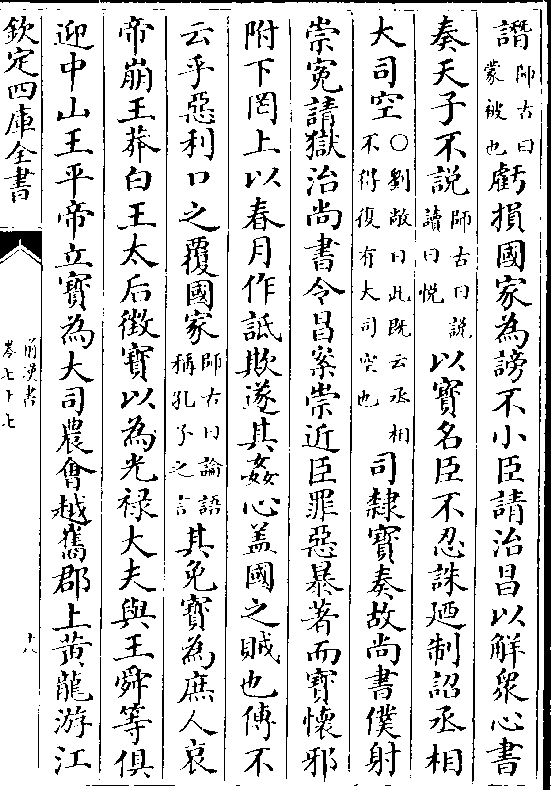 譖師古曰蒙被也虧損國家為謗不小臣請治昌以解衆心書
奏天子不說師古曰說讀曰悅以寶名臣不忍誅廼制詔丞相
大司空○劉敞曰此既云丞相不得復有大司空也司隸寶奏故尚書僕射
崇寃請獄治尚書令昌案崇近臣罪惡暴著而寶懷邪
附下罔上以春月作詆欺遂其姦心盖國之賊也傳不
云乎惡利口之覆國家師古曰論語稱孔子之言其免寶為庶人哀
帝崩王莽白王太后徵寶以為光禄大夫與王舜等俱
迎中山王平帝立寶為大司農會越嶲郡上黄龍游江
欽定四庫全書
前漢書
卷七十七
十八